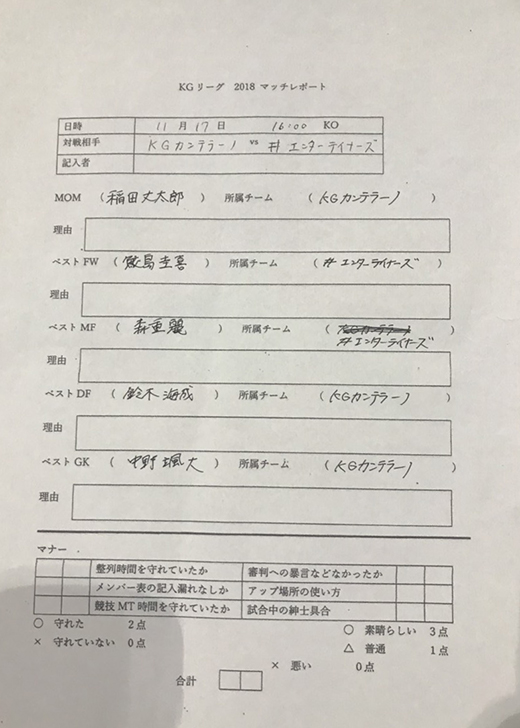 KGリーグ 2018 マッチレポート
日時 11月17日 16:00 KO
対戦相手 KGカンテラーノ vs #エンターテイナーズ
記入者
MOM (稲田丈太郎) 所属チーム (KGカンテラーノ)
理由
ベストFW (鮫島圭喜) 所属チーム (#エンターテイナーズ)
理由
ベストMF (森重翼) 所属チーム (KGカンテラーノ)
#エンターテイナーズ
理由
ベストDF (鈴木海成) 所属チーム (KGカンテラーノ)
理由
ベストGK (中野颯大) 所属チーム (KGカンテラーノ)
理由
マナー
整列時間を守れていたか 審判への暴言などなかったか
メンバー表の記入漏れなしか アップ場所の使い方
競技MT時間を守れていたか 試合中の紳士具合
○ 守れた 2点 ○ 素晴らしい 3点
× 守れていない 0点 △ 普通 1点
× 悪い 0点
合計